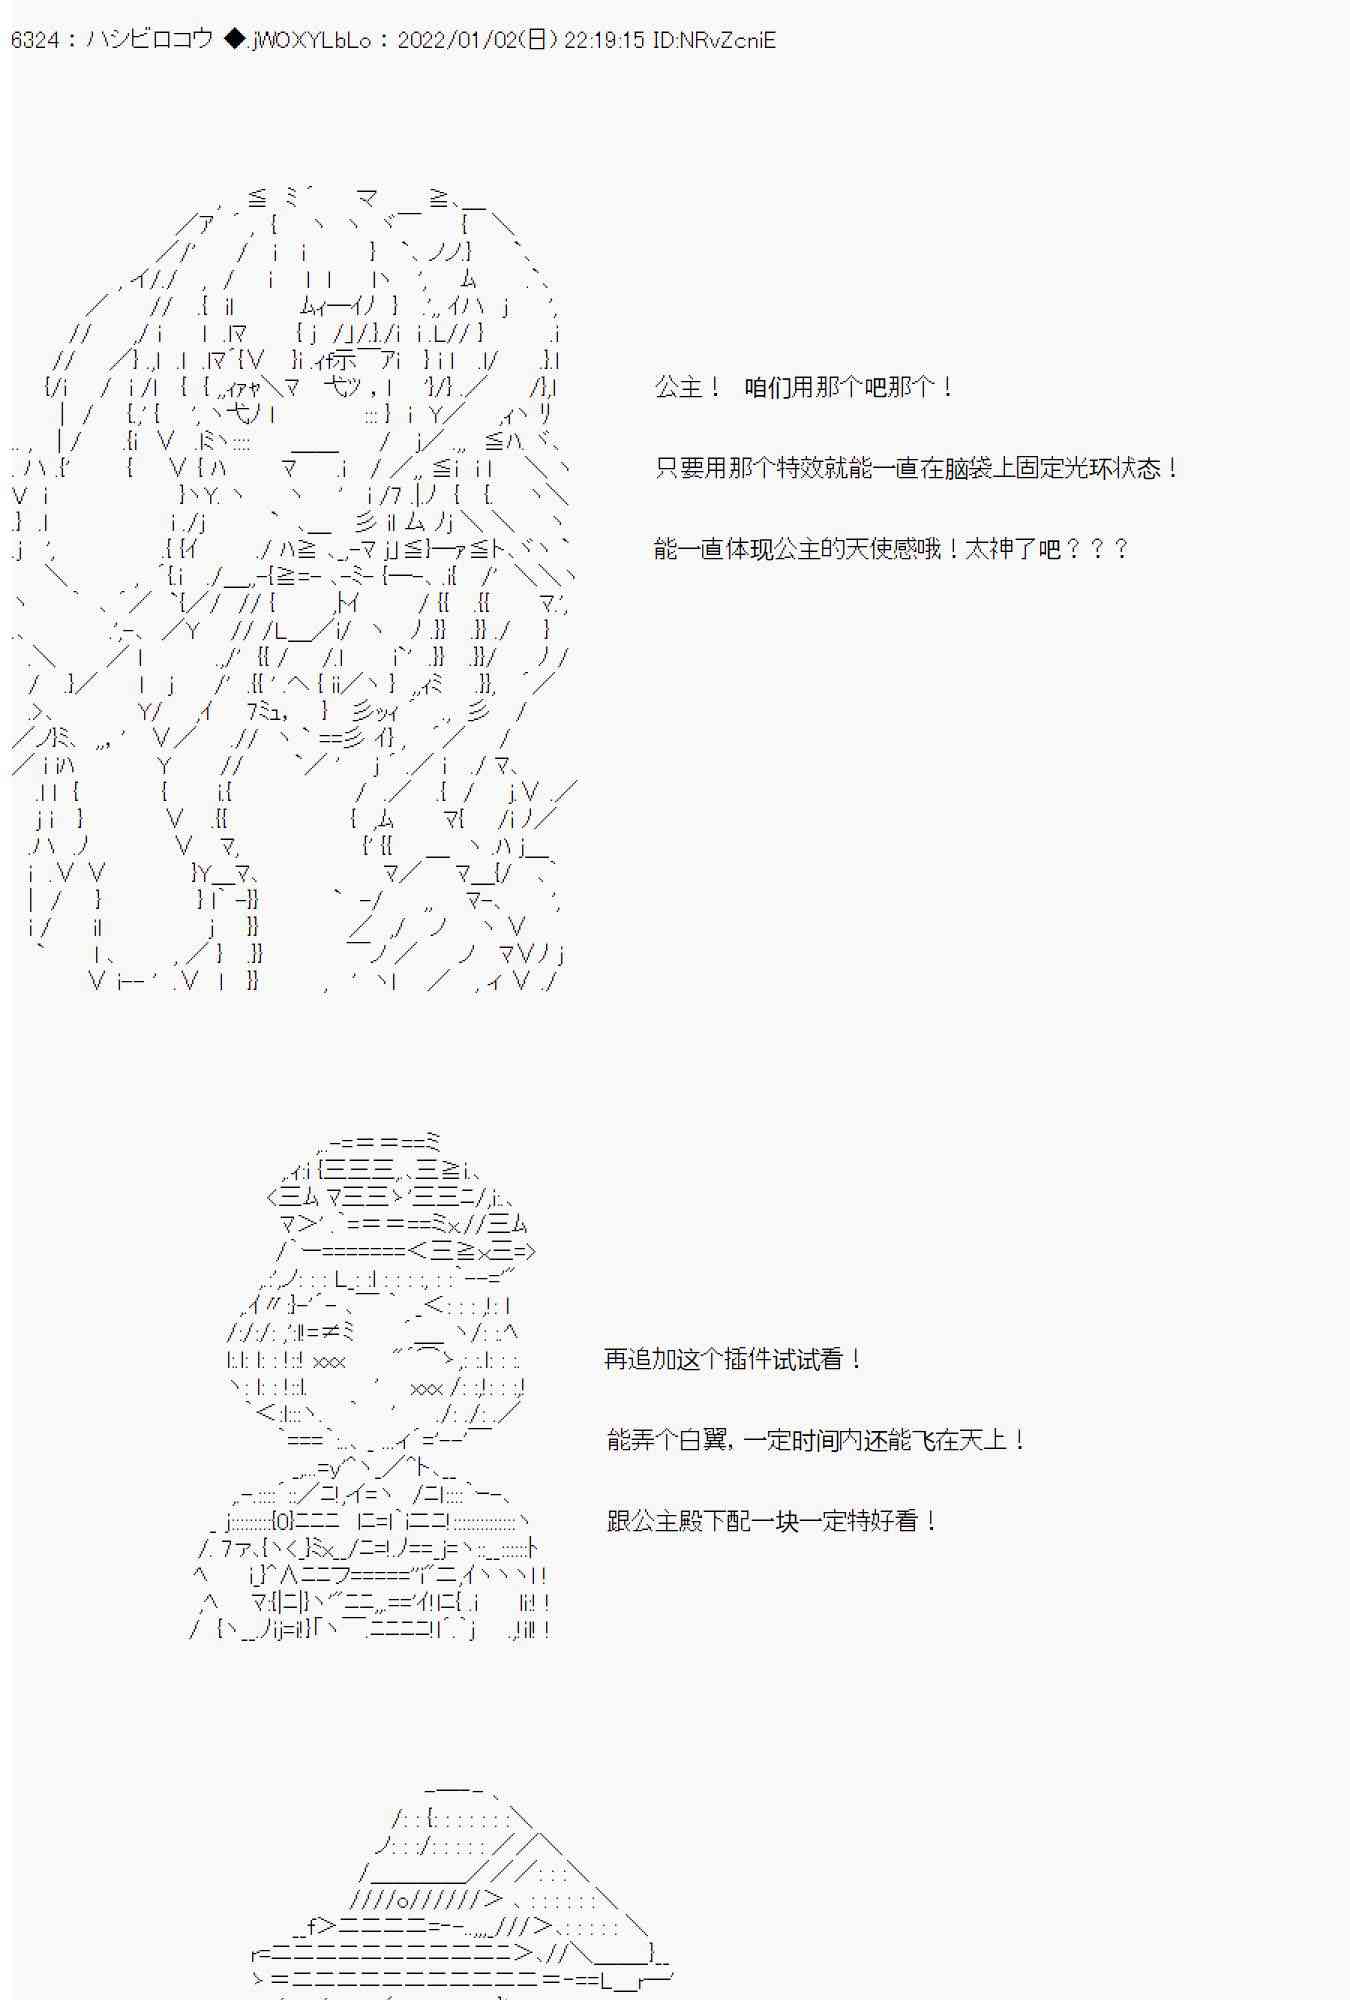 6324 : ハシビロコウ ◆.jWOXYLbLo : 2022/01/02(日) 22:19:15 ID:NRvZcniE
公主！ 咱们用那个吧那个！
只要用那个特效就能一直在脑袋上固定光环状态！
能一直体现公主的天使感哦！太神了吧？？？
再追加这个插件试试看！
能弄个白翼，一定时间内还能飞在天上！
跟公主殿下配一块一定特好看！